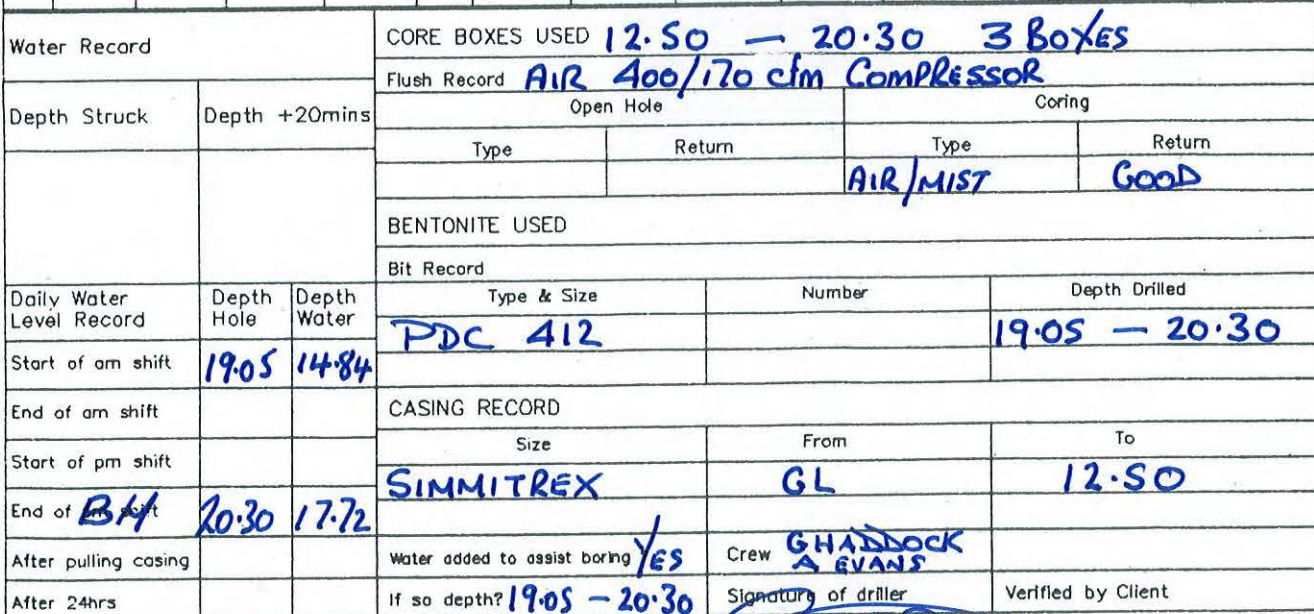 Water Record
Depth Struck Depth +20mins
Daily Water Level Record Depth Hole Depth Water
Start of am shift 19.05 14.84
End of am shift
Start of pm shift
End of BH 20.30 17.72
After pulling casing
After 24hrs
CORE BOXES USED 12.50 — 20.30 3 BOXES
Flush Record AIR 400/170 cfm COMPRESSOR
Open Hole Coring
Type Return Type Return
AIR/MIST GOOD
BENTONITE USED
Bit Record
Type & Size Number Depth Drilled
PDC 412 19.05 — 20.30
CASING RECORD
Size From To
SIMMITREX GL 12.50
Water added to assist boring YES Crew G HADDOCK
A EVANS
If so depth? 19.05 — 20.30 Signature of driller Verified by Client